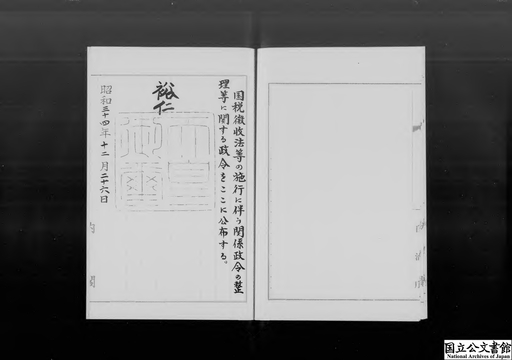 国税徴収法等の施行に伴う関係政令の整
理等に関する政令をここに公布する。
裕仁
天皇御璽
昭和三十四年十二月二十六日
内閣
国立公文書館
National Archives of Japan